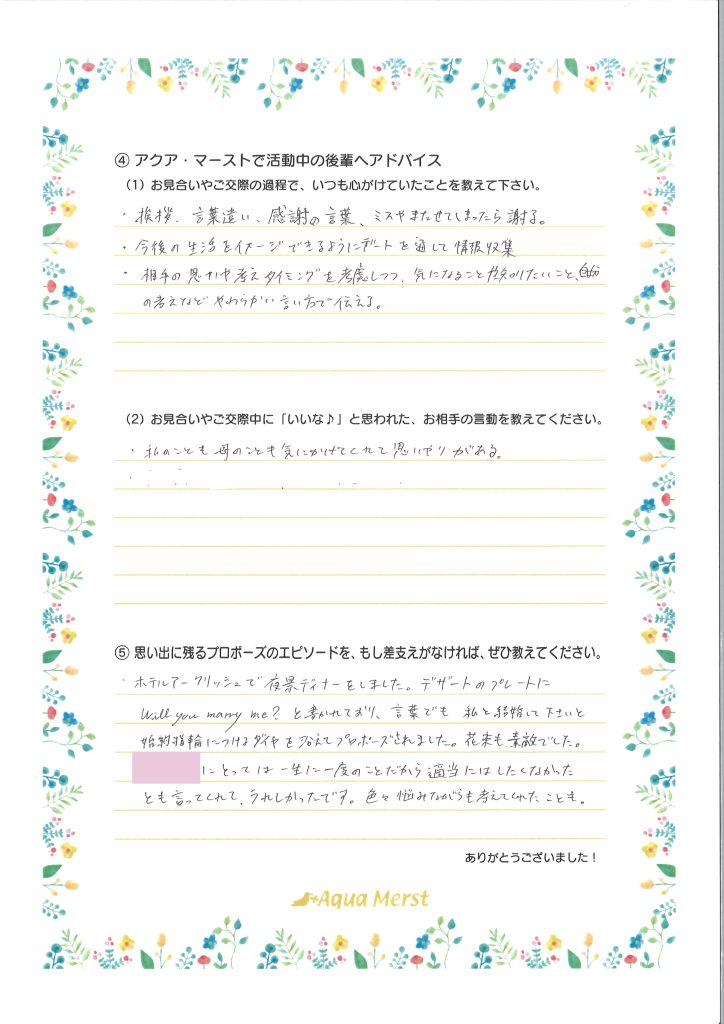 ④ アクア・マーストで活動中の後輩へアドバイス
（1）お見合いやご交際の過程で、いつも心がけていたことを教えて下さい。
・挨拶、言葉遣い、感謝の言葉、ミスやまたせてしまったら謝る。
・今後の生活をイメージできるようにデートを通して情報収集
・相手の思いや考えタイミングを考慮しつつ、気になること 知りたいこと、自分
の考えなど やわらかい言い方で伝える。
（2）お見合いやご交際中に「いいな♪」と思われた、お相手の言動を教えてください。
・私のことも母のことも気にかけてくれて思いやりがある。
⑤ 思い出に残るプロポーズのエピソードを、もし差支えがなければ、ぜひ教えてください。
・ホテルアークリッシュで夜景ディナーをしました。デザートのプレートに
Will you marry me? と書かれており、言葉でも 私と結婚して下さいと
婚約指輪につけるダイヤを添えてプロポーズされました。花束も素敵でした。
にとっては一生に一度のことだから適当にはしたくなかった
とも言ってくれて、うれしかったです。色々悩みながらも考えてくれたことも。
ありがとうございました！
Aqua Merst